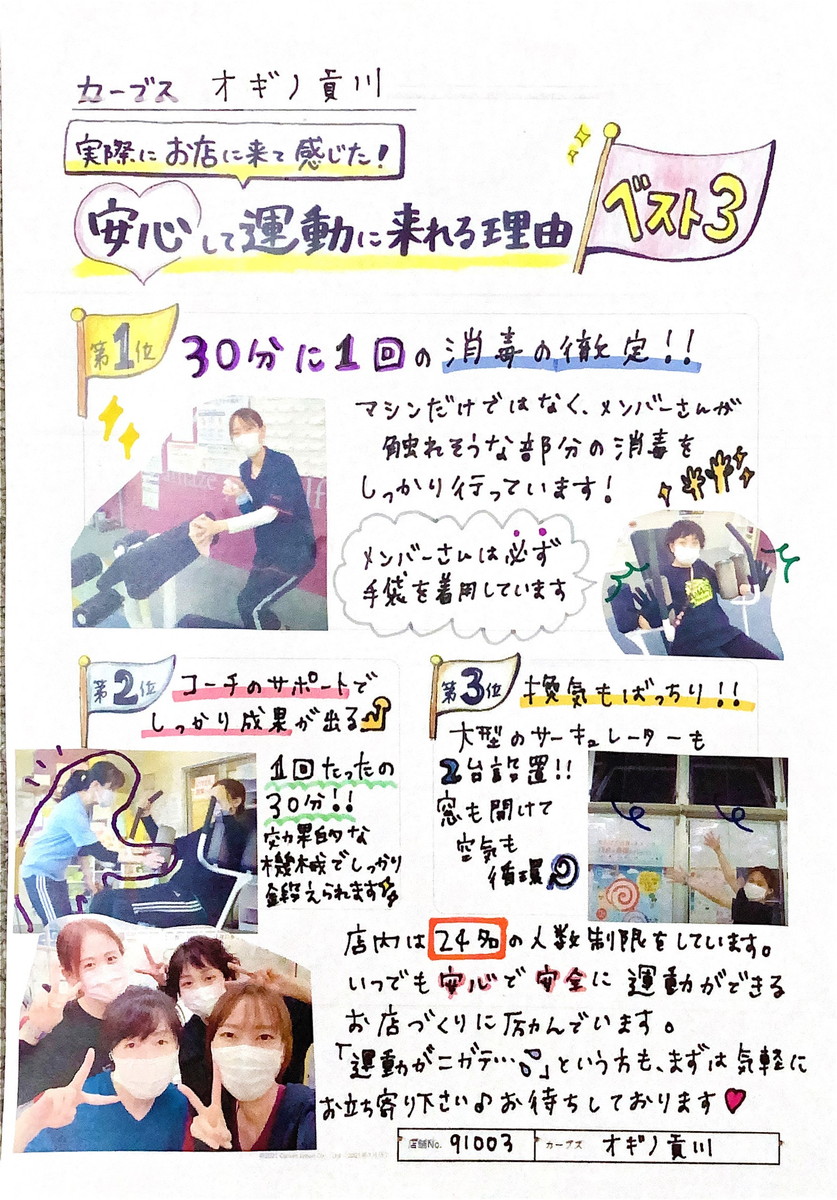 カーブス オギノ貢川
実際にお店に来て感じた!
安心して運動に来れる理由
ベスト3
第1位
30分に1回の消毒の徹定!!
マシンだけではなく、メンバーさんが
触れそうな部分の消毒を
しっかり行っています!
メンバーさんは必ず
手袋を着用しています
第2位
コーチのサポートで
しっかり成果が出る
1回たったの
30分!!
効果的な
機械でしっかり
鍛えられます
第3位
換気もばっちり!!
大型のサーキュレーターも
2台設置!!
窓も開けて
空気も
循環
店内は24名の人数制限をしています。
いつでも安心で安全に運動ができる
お店づくりに励んでいます。
「運動がニガテ…」という方も、まずは気軽に
お立ち寄り下さい♪お待ちしております♥
店舗No. 91003 カーブス オギノ貢川